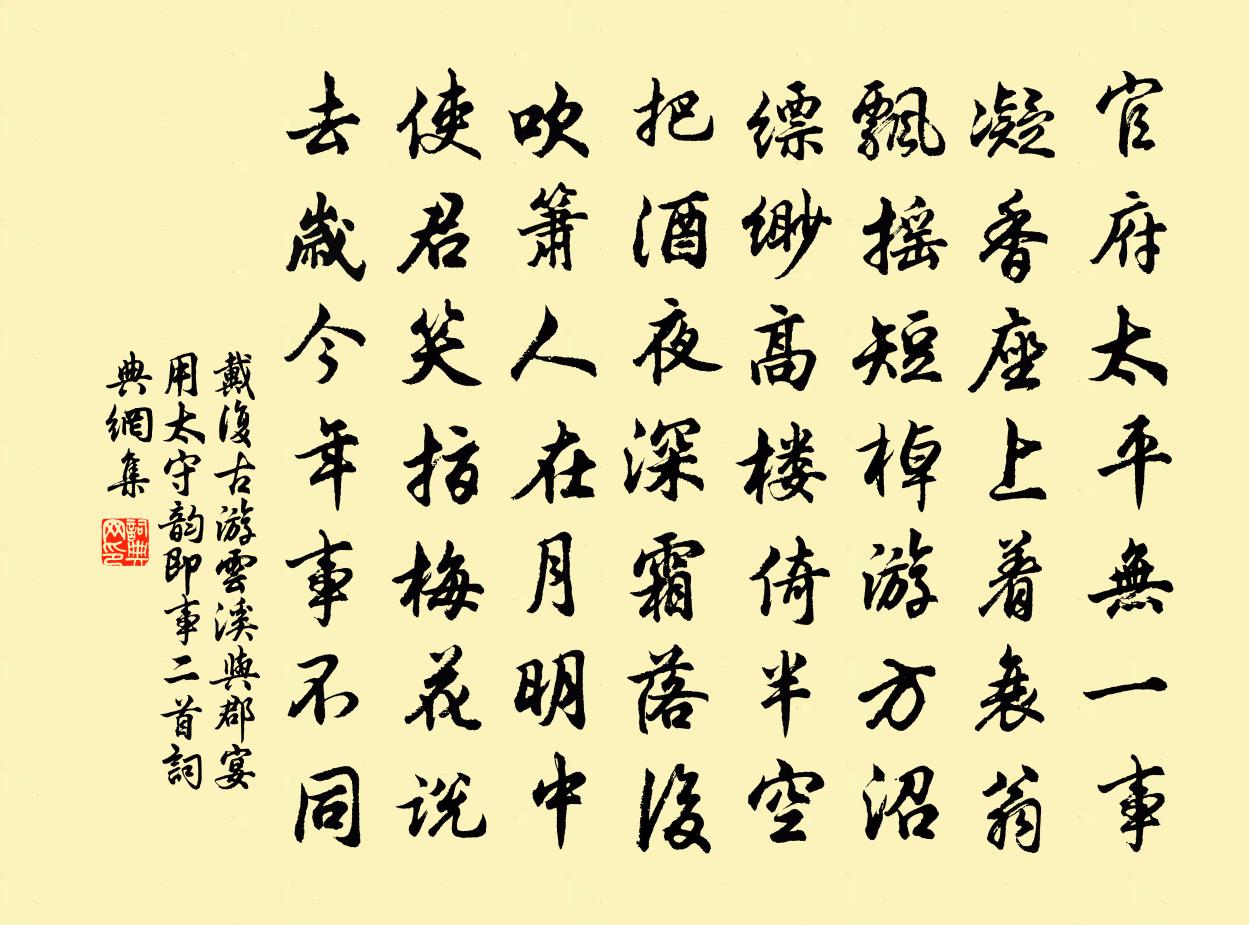 官府太平無一事
凝香座上着衰翁
飄摇短棹游方沼
縹缈高楼倚半空
把酒夜深霜落後
吹簫人在月明中
使君笑指梅花说
去歲今年事不同
戴復古游雲溪與郡宴
用太守韵即事二首詞
典網集
詞典
网印